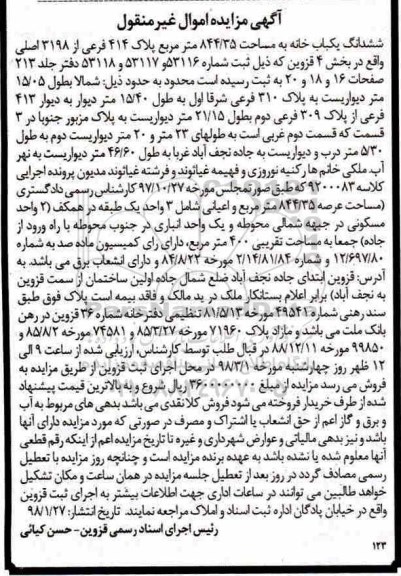 آگهی مزایده اموال غیر منقول
ششدانگ یکباب خانه به مساحت ۸۴۴/۳۵ متر مربع پلاک ۴۱۴ فرعی از ۳۱۹۸ اصلی
واقع در بخش ۴ قزوین که ذیل ثبت شماره ۵۳۱۱۶ و ۵۳۱۱۷ و ۵۳۱۱۸ دفتر جلد ۲۱۳
صفحات ۱۶ و ۱۸ و ۲۰ به ثبت رسیده است محدود به حدود ذیل: شمالا بطول ۱۵/۰۵
متر دیواریست به پلاک ۳۱۰ فرعی شرقا اول به طول ۱۵/۴۰ متر دیوار به دیوار ۴۱۳
فرعی از پلاک ۳۰۹ فرعی دوم بطول ۲۱/۱۵ متر دیواریست به پلاک مزبور جنوبا در ۳
قسمت که قسمت دوم غربی است به طولهای ۲۳ متر و ۲۰ متر دیواریست دوم به طول
۵/۳۰ متر درب و دیواریست به جاده نجف آباد غربا به طول ۴۶/۶۰ متر دیواریست به نهر
آب. ملکی خانم ها رکنیه نوروزی و فهیمه غیاثوند و فرشته غیاثوند مدیون پرونده اجرایی
کلاسه ۹۲۰۰۰۸۳ که طبق صورتمجلس مورخه ۹۷/۱۰/۲۷ کارشناس رسمی دادگستری
(مساحت عرصه ۸۴۴/۳۵ متر مربع و اعیانی شامل ۳ واحد یک طبقه در همکف (۲ واحد
مسکونی در جبهه شمالی محوطه و یک واحد انباری در جنوب محوطه با راه ورود از
جاده) جمعا به مساحت تقریبی ۴۰۰ متر مربع، دارای رای کمیسیون ماده صد به شماره
۱۲/۶۹۷/۸۰ و شماره ۲/۱۴/۸۱/۸۴ مورخه ۸۴/۸/۲۲ و دارای انشعاب برق می باشد. به
آدرس: قزوین ابتدای جاده نجف آباد ضلع شمال جاده اولین ساختمان از سمت قزوین
به نجف آباد) برابر اعلام بستانکار ملک در ید مالک و فاقد بیمه است پلاک فوق طبق
سند رهنی شماره ۴۹۵۴۱ مورخه ۸۱/۵/۱۳ تنظیمی دفترخانه شماره ۳۶ قزوین در رهن
بانک ملت می باشد و مازاد پلاک ۷۱۹۶۰ مورخه ۸۵/۳/۲۷ و ۷۴۵۸۱ مورخه ۸۵/۸/۲ و
۹۹۸۵۰ مورخه ۸۸/۱۲/۱۱ در قبال طلب توسط کارشناس، ارزیابی شده از ساعت ۹ الی
۱۲ ظهر روز چهارشنبه مورخه ۹۸/۳/۱ در محل اجرای ثبت قزوین از طریق مزایده به
فروش می رسد مزایده از مبلغ ریال شروع و به بالاترین قیمت پیشنهاد
شده از طرف خریدار فروخته می شود فروش کلا نقدی می باشد بدهی های مربوط به آب
و برق و گاز اعم از حق انشعاب یا اشتراک و مصرف در صورتی که مورد مزایده دارای آنها
باشد و نیز بدهی مالیاتی و عوارض شهرداری و غیره تا تاریخ مزایده اعم از اینکه رقم قطعی
آنها معلوم شده یا نشده باشد به عهده برنده مزایده است و چنانچه روز مزایده با تعطیل
رسمی مصادف گردد در روز بعد از تعطیل جلسه مزایده در همان ساعت و مکان تشکیل
خواهد طالبین می توانند در ساعات اداری جهت اطلاعات بیشتر به اجرای ثبت قزوین
واقع در خیابان پادگان اداره ثبت اسناد و املاک مراجعه نمایند. تاریخ انتشار: ۹۸/۱/۲۷
رئیس اجرای اسناد رسمی قزوین - حسن کیائی
۱۲۳